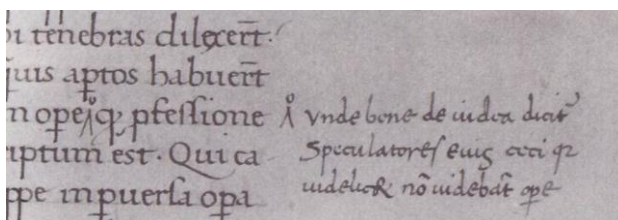 tenebras dilexer̄t·
quis aptos habuer̄t
ꝓfessione
iptum est · Qui ca
ppe in ꝑuersa oꝑa
vnde bene de iudea dicit᷑
Speculatores eiꝰ ceci qꝛ
nō uidebāt oꝑe